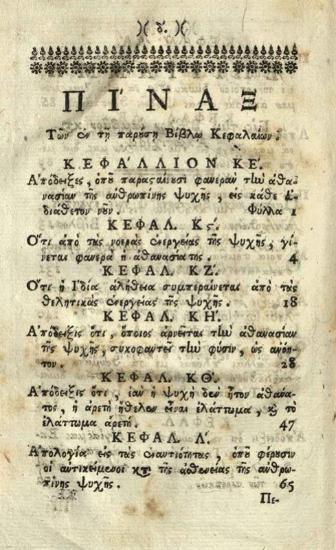 )( ४. )(
ΠΙ´ΝΑΞ
Τῶν ἐν τῇ παρούσῃ Βίβλῳ Κεφαλαίων.
ΚΕΦΑ´ΛΑΙΟΝ ΚΕ´.
Ἀπόδειξες, ὁποῦ παραςαίνουσι φανερὰν τὴν ἀθα-
νασίαν τῆς ἀνθρωπίνης ψυχῆς, εἰς κάθε
διάθετον νοῦν. Φύλλα 1
ΚΕΦΑΛ. Κϛ´.
Ὅτι ἀπὸ τὰς νοερὰς ἐνεργείας τῆς ψυχῆς, γί-
νεται φανερὰ ἡ ἀθανασία τῆς. 4
ΚΕΦΑΛ. ΚΖ´.
Ὅτι ἡ Ἰδία ἀλήθεια συμπεραίνεται ἀπὸ τὰς
θελητικὰς ἐνεργείας τῆς ψυχῆς. 18
ΚΕΦΑΛ. ΚΗ´.
Ἀπόδειξις ὅτι, ὅποιος ἀρνεῖται τὴν ἀθανασίαν
τῆς ψυχῆς, συκοφαντεῖ τὴν φύσιν, ὡς ἀνόη-
τον. 28
ΚΕΦΑΛ. ΚΘ´.
Ἀπόδειξις ὅτι, ἐὰν ἡ ψυχὴ δὲν ἦτον ἀθάνα-
τος, ἡ ἀρετὴ ἤθελεν εἶναι ἐλάττωμα, ϗ τὸ
ἐλάττωμα ἀρετή. 47
ΚΕΦΑΛ. Λ´.
Ἀπολογία εἰς τὰς ἐναντιότητας, ὁποῦ φέρουσιν
οἱ ἀντικείμενοι κατὰ τῆς ἀσθενείας τῆς ἀνθρω-
πίνης ψυχῆς. 65
Πε-